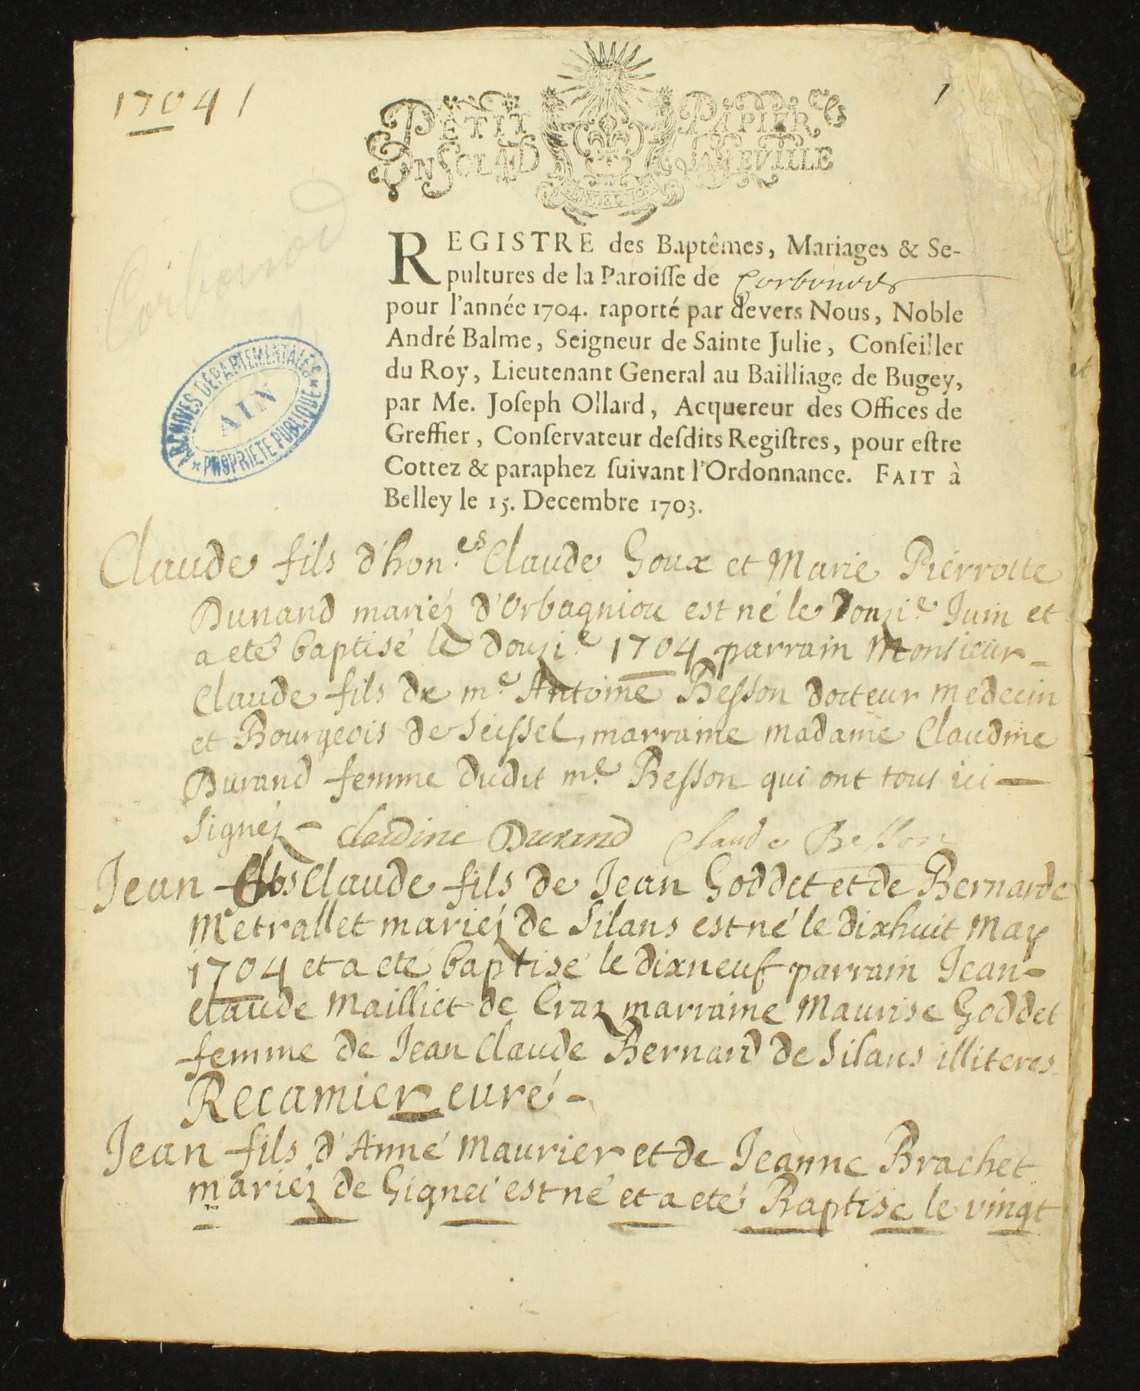 1704 1
1
PETIT PAPIER
UN SOL 4D LA FEVILLE
Corbonod
REGISTRE des Baptêmes, Mariages & Se-
pultures de la Paroiſſe de Corbonod
pour l'année 1704. raporté par devers Nous, Noble
André Balme, Seigneur de Sainte Julie, Conſeiller
du Roy, Lieutenant General au Bailliage de Bugey,
par Me. Joſeph Ollard, Acquereur des Offices de
Greffier, Conſervateur deſdits Regiſtres, pour eſtre
Cottez & paraphez ſuivant l'Ordonnance. FAIT à
Belley le 15. Decembre 1703.
ARCHIVES DÉPARTEMENTALES
AIN
PROPRIÉTÉ PUBLIQUE
Claude fils d'hon.es Claude Goux et Marie Pierrotte
Dunand mariéz d'Orbagniou est né le Douzi.e Juin et
a eté baptisé le douzi.e 1704 parrain Monsieur
Claude fils de m.e Antoine Besson docteur medecin
et Bourgeois de Seissel, marraine madame Claudine
Durand femme dudit m.e Besson qui ont tout ici
signéz - claudine Durand Claude Besson
Jean Claude fils de Jean Goddet et de Bernarde
Metrallet mariéz de Silans est né le dixhuit May
1704 et a eté baptisé le dixneuf parrain Jean-
claude Mailliet de Craz marraine Maurise Goddet
femme de Jean Claude Bernard de Silans illiteres
Recamier curé -
Jean fils d'Anné Maurier et de Jeanne Brachet
mariéz de Gignéi est né et a eté Baptisé le vingt